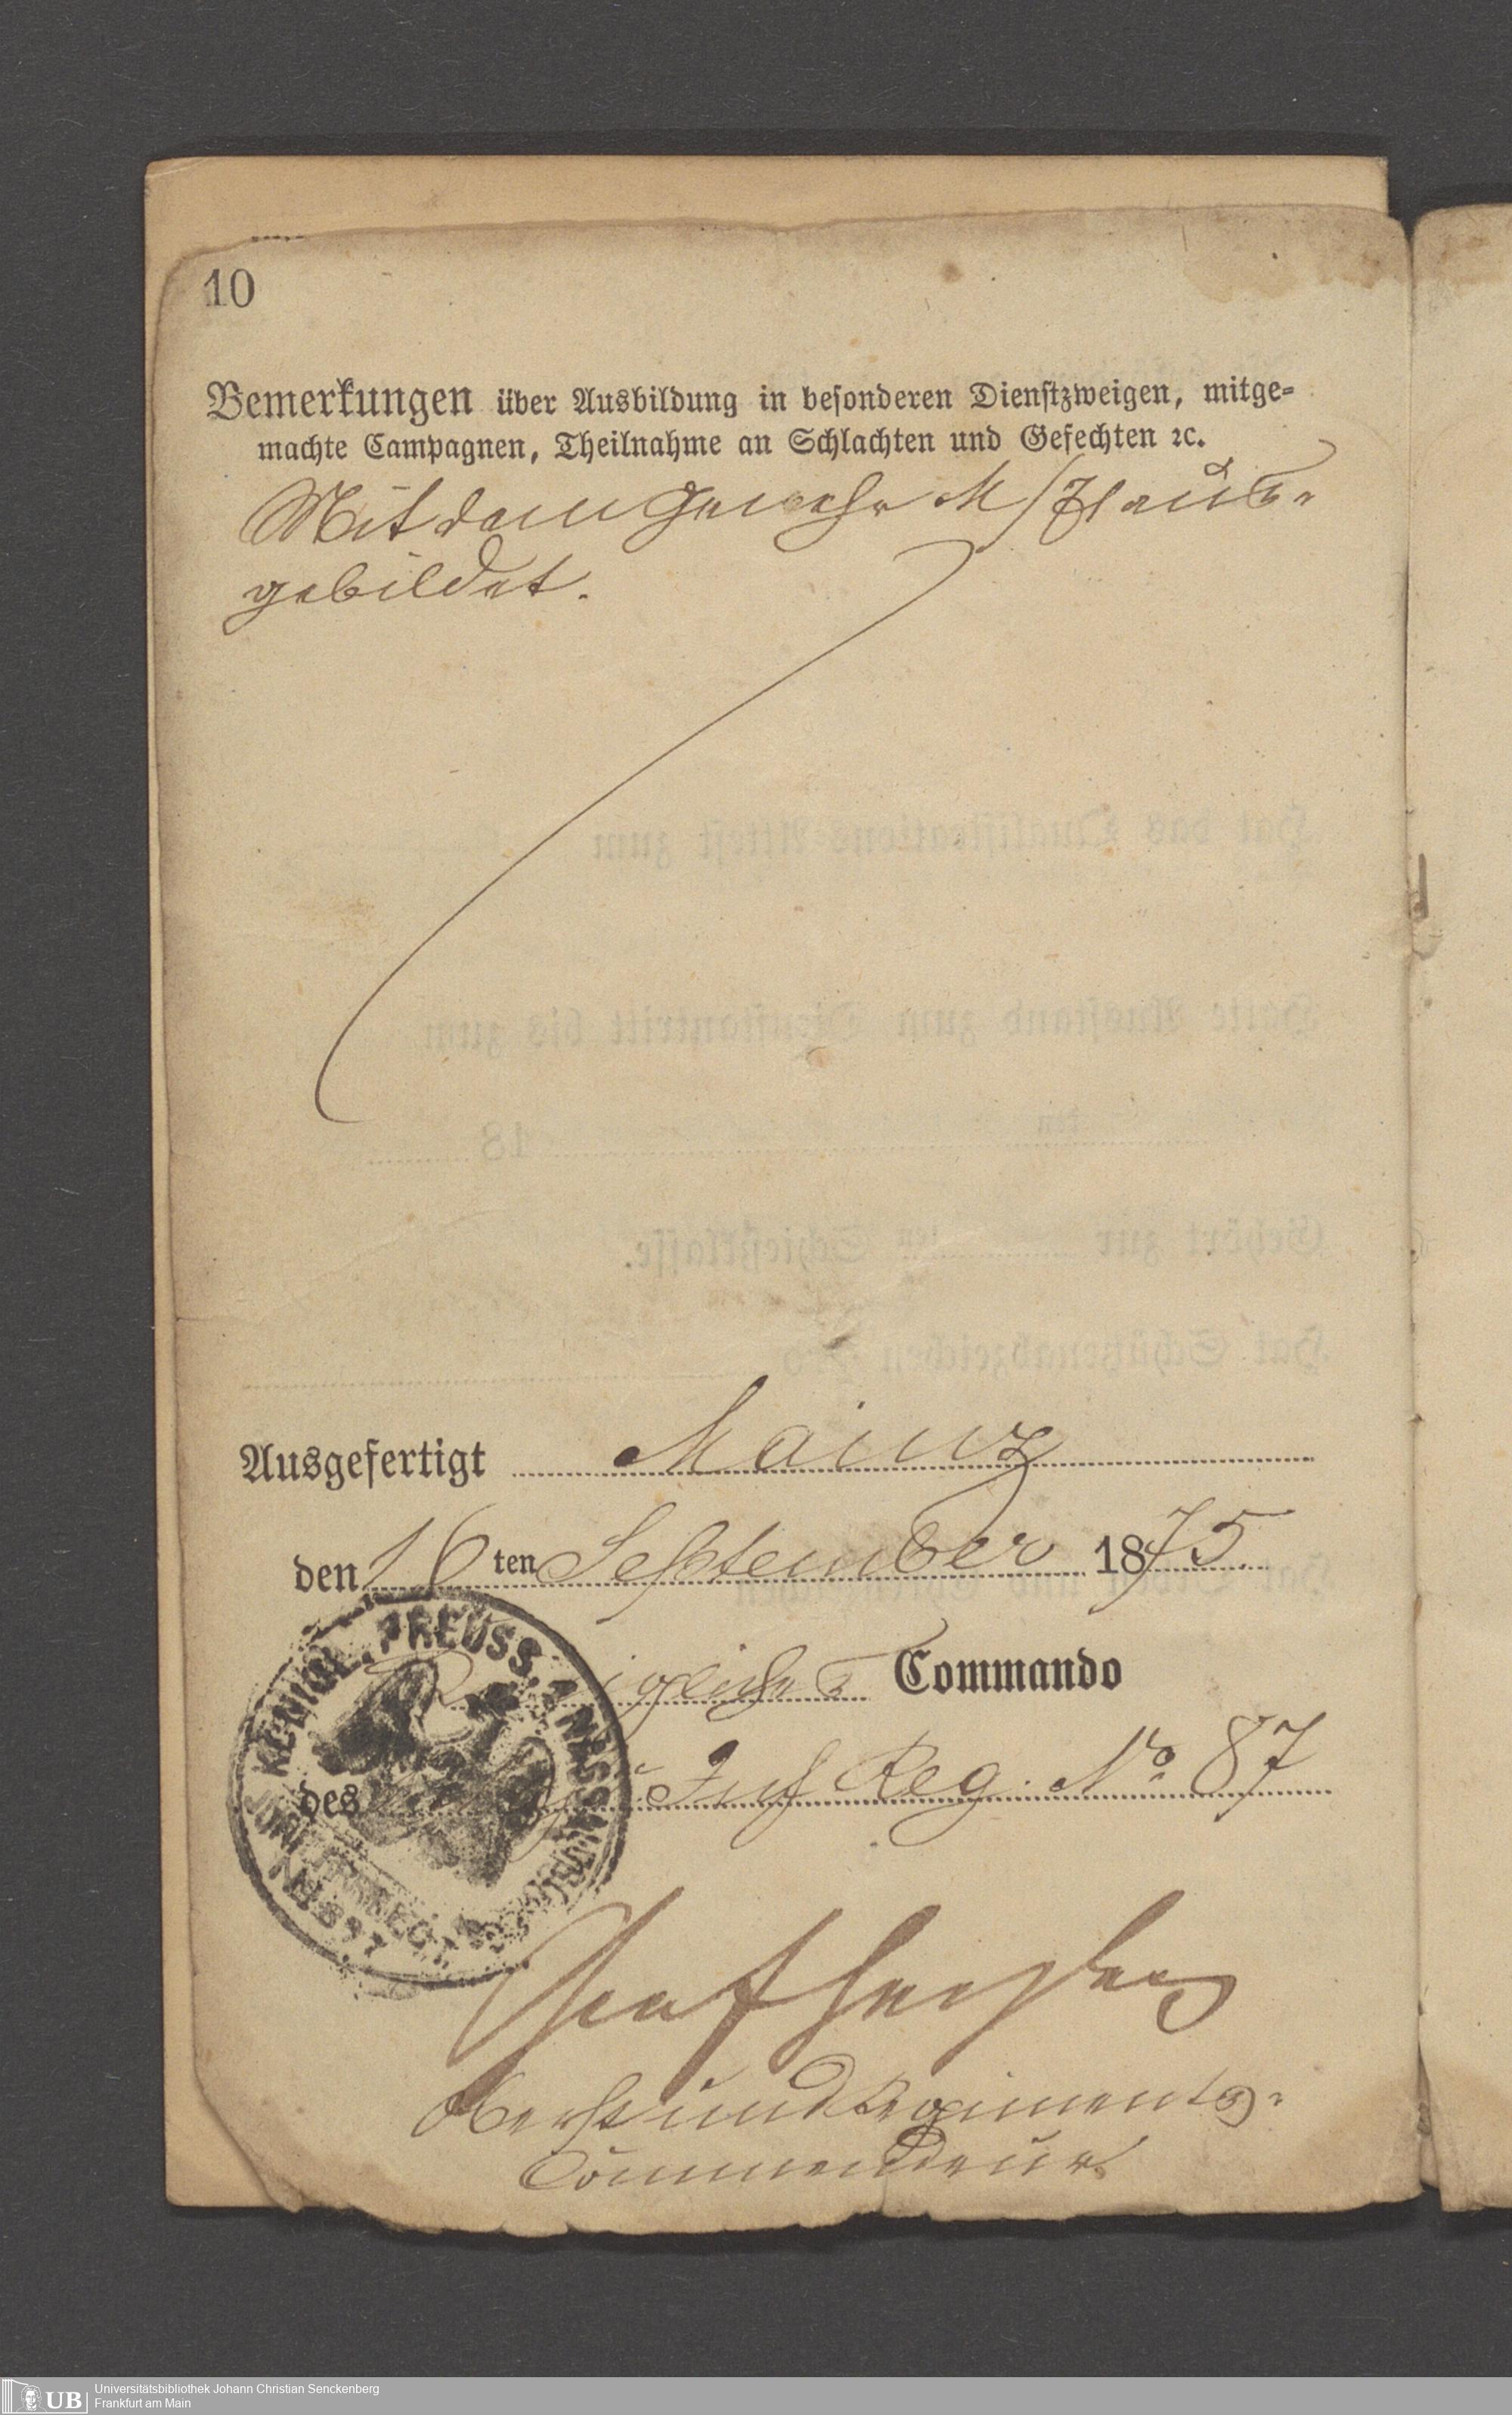 10
Bemerkungen über Ausbildung in besonderen Dienstzweigen, mitge-
machte Campagnen, Theilnahme an Schlachten und Gefechten ꝛc.
Mit dem Gewehr M/71 aus-
gebildet.
Ausgefertigt Mainz
den 16ten September 1875.
Königliches Commando
des Inf Reg. No 87
KÖNIGL. PREUSS.
Oberst und Regiments-
Commandeur
UB Universitätsbibliothek Johann Christian Senckenberg
Frankfurt am Main